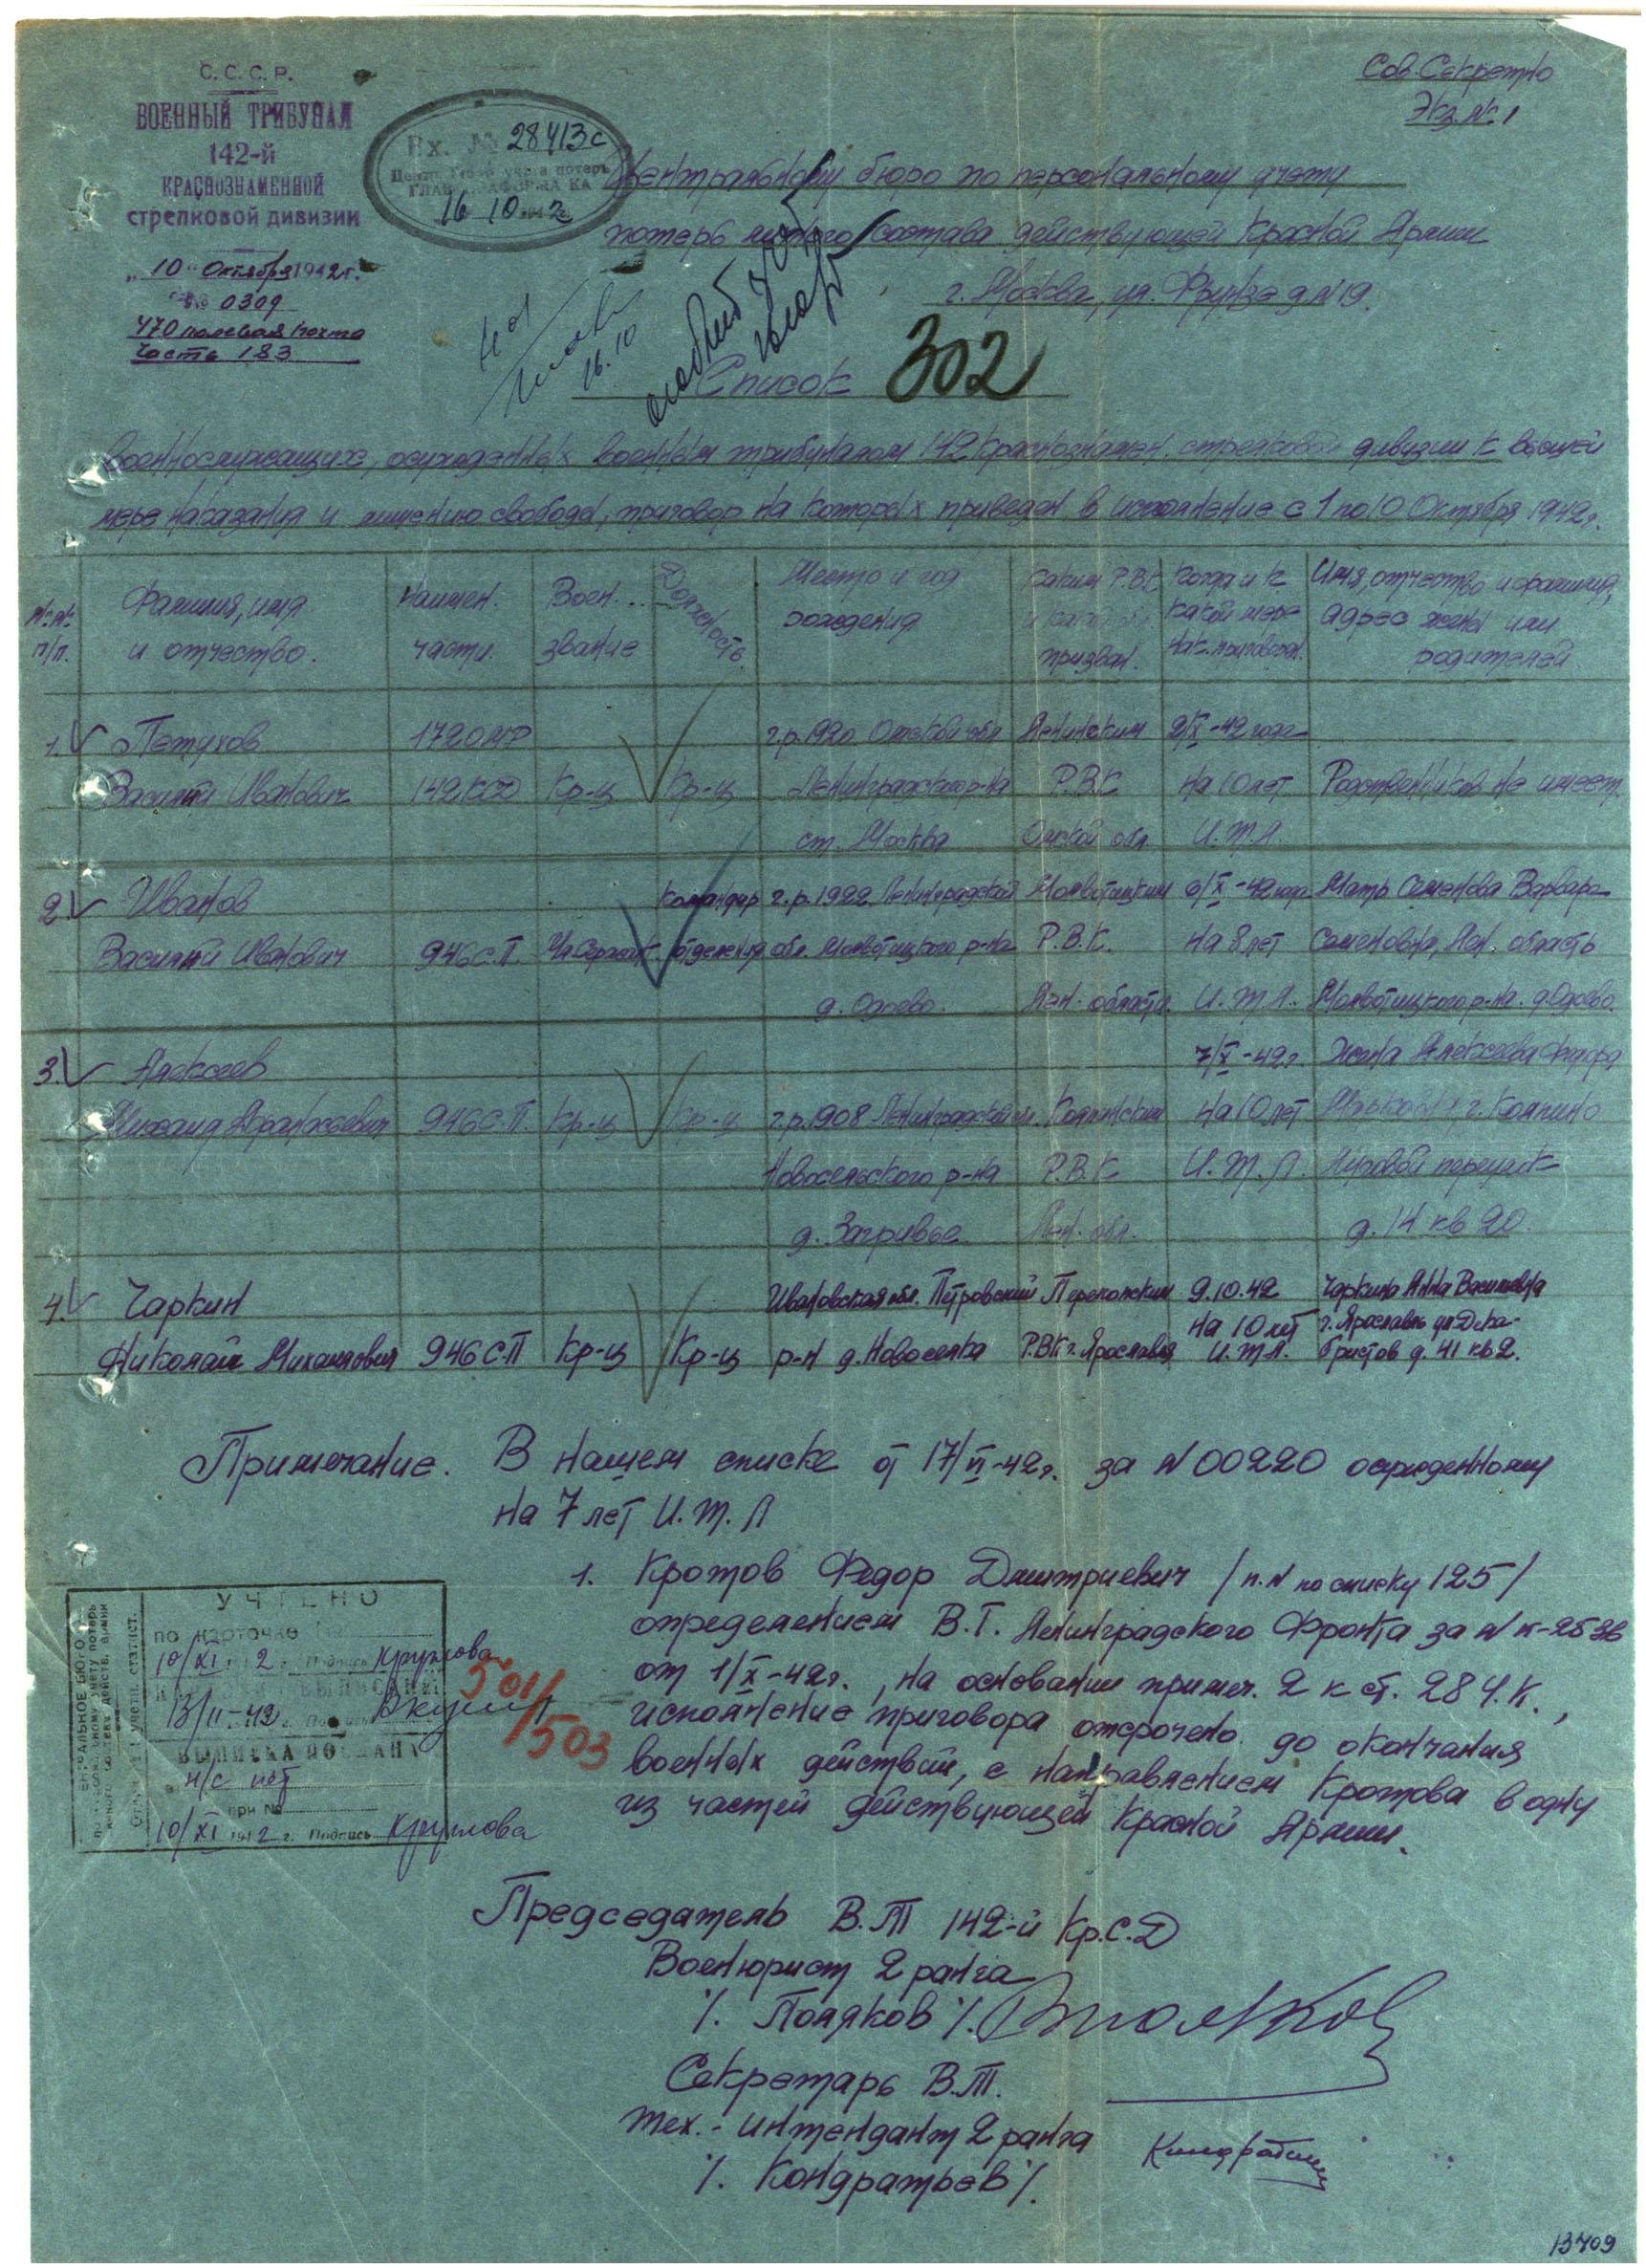 С.С.С.Р.
ВОЕННЫЙ ТРИБУНАЛ
142-й
КРАСНОЗНАМЕННОЙ
стрелковой дивизии
"10" Октября 1942 г.
№ 0309
470 полевая почта
часть 183
Вх. № 28413с
16 10 1942
Сов. Секретно
Экз. №. 1
Центральному бюро по персональному учету
потерь личного состава действующей Красной Армии
г. Москва, ул. Фрунзе д N 19.
16.10
Список 302
военнослужащих, осужденных военным трибуналом 142 Краснознамен. стрелковой дивизии к высшей
мере наказания и лишению свободы, приговор на которых приведен в исполнение с 1 по 10 Октября 1942 г.
№.№. п/п. Фамилия, имя и отчество. Наимен. части. Воен. звание Должность Место и год рождения Каким Р.В.К. призван. Когда и к какой мере нак. приговорен. Имя, отчество и фамилия, адрес жены или родителей
1. Петухов 1720 г.р. 1920 Омской обл Ленинским 2/X-42 года
Василий Иванович 142 КСД Кр-ц Кр-ц Ленинградского р-на Р.В.К на 10 лет Родственников не имеет.
ст. Москва Омской обл. И.Т.Л.
2. Иванов командир г.р. 1922 Ленинградской Молвотицким 6/X-42 года Мать Семенова Варвара
Василий Иванович 946 С.П. отделения обл. Молвотицкого р-на Р.В.К. на 8 лет Семеновна, Лен. область
д. Одоево. Лен. области. И.Т.Л. Молвотицкого р-на. д. Одоево.
3. Алексеев 7/X-42 г. Жена Алексеева
Михаил 946 С.П. Кр-ц Кр-ц г.р. 1908 Ленинградской Колпинским на 10 лет г. Колпино
Новосельского р-на Р.В.К И.Т.Л. переулок
д. Загривье Лен. обл. д. 14 кв 20.
4. Чаркин Ивановская обл. Петровский 9.10.42 Чаркина Анна Васильевна
на 10 лет г. Ярославль ул Дека-
Николай Михайлович 946 С.П Кр-ц Кр-ц р-н д. Новоселка Р.В.К г. Ярославля И.Т.Л. бристов д. 41 кв 2.
Примечание. В нашем списке от 17/VI-42 г. за N 00220 осужденному
на 7 лет И.Т.Л
1. Кротов Федор Дмитриевич /п. N по списку 125/
определением В.Т. Ленинградского Фронта за N
от 1/X-42 г., на основании примеч. 2 к ст. 28 У.К.,
исполнение приговора отсрочено до окончания
военных действий, с направлением Кротова в одну
из частей действующей Красной Армии.
УЧТЕНО
по карточке №
10/XI 1942 г. Подпись Круглова
13/11-42 г.
501/503
ВЫПИСКА ПОСЛАНА
н/с нет
при №
10/XI 1942 г. Подпись Круглова
Председатель В.Т 142-й Кр.С.Д
Военюрист 2 ранга
/. Поляков /.
Секретарь В.Т.
тех.-интендант 2 ранга
/. Кондратьев /.
13409